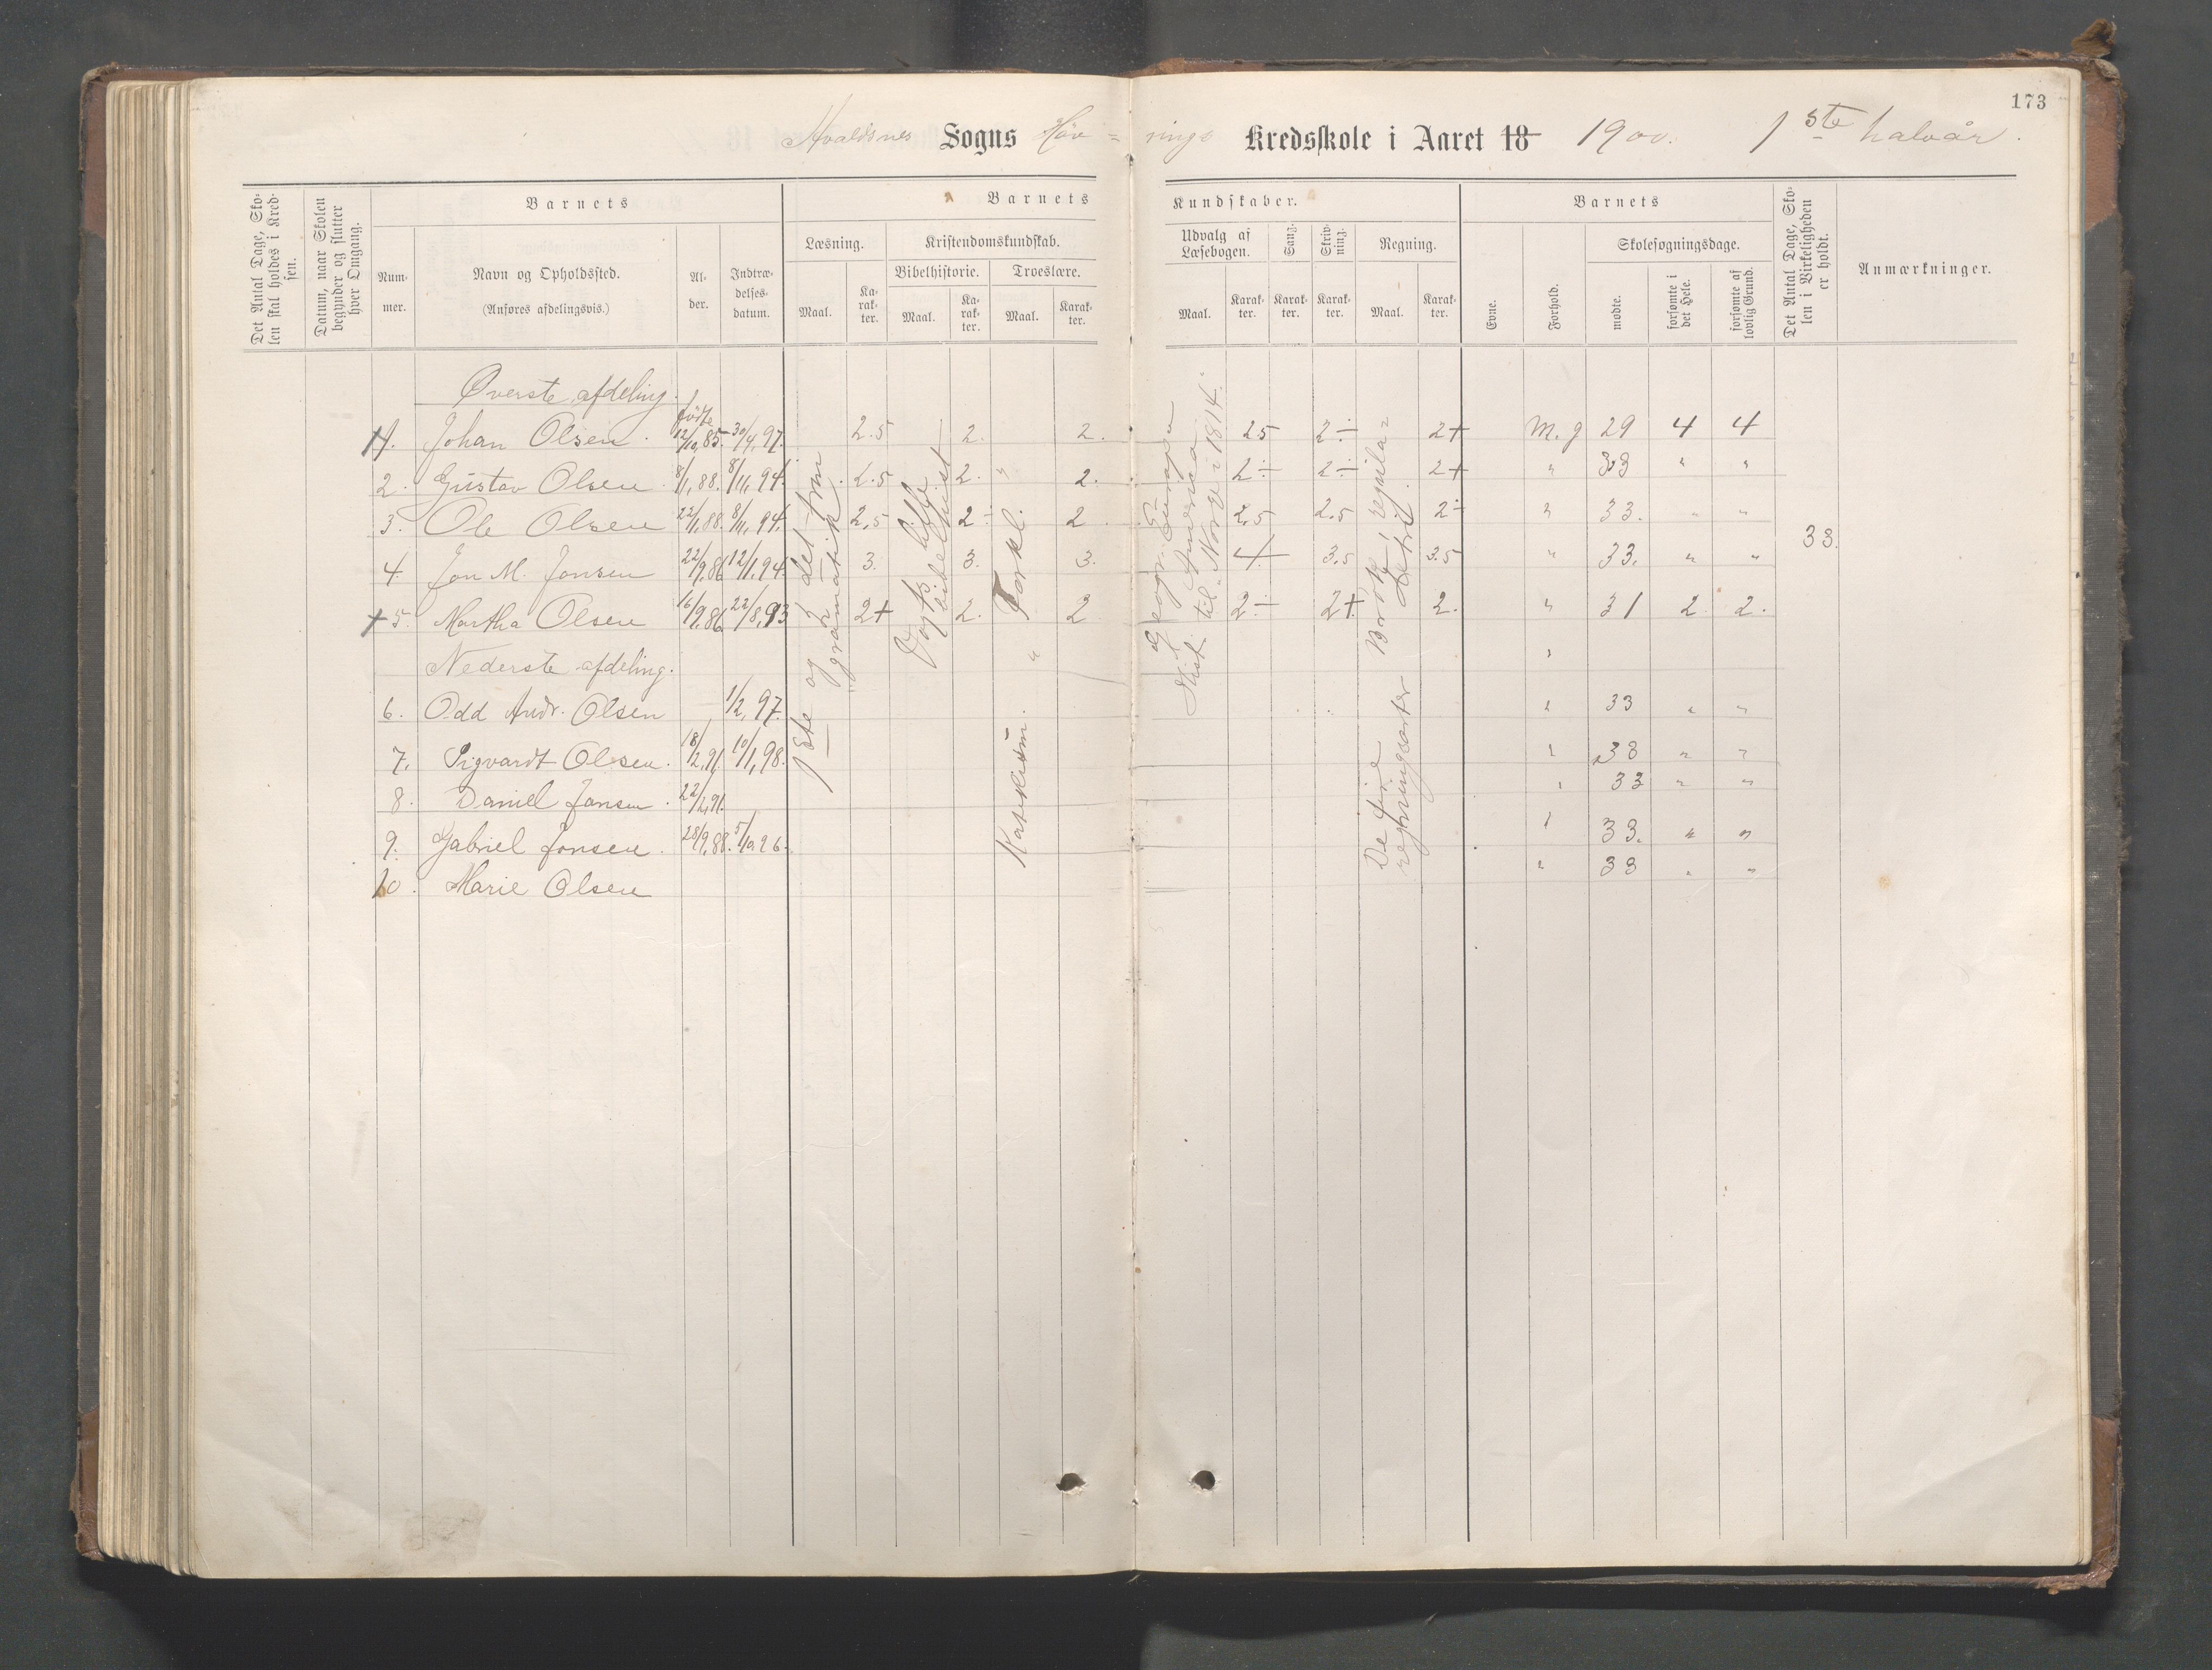 173
Avaldsnes Sogns Høv = rings Kredsskole i Aaret 18 1900. 1ste halvår.
Det Antal Dage, Skolen skal holdes i Kredsen.
Datum, naar Skolen begynder og slutter hver Omgang.
Barnets
Nummer.
Navn og Opholdssted.
(Anføres afdelingsvis.)
Alder.
Indtrædelsesdatum.
Barnets Kundskaber.
Læsning.
Maal.
Karakter.
Kristendomskundskab.
Bibelhistorie.
Maal.
Karakter.
Troeslære.
Maal.
Karakter.
Udvalg af Læsebogen.
Maal.
Karakter.
Sang.
Karakter.
Skrivning.
Karakter.
Regning.
Maal.
Karakter.
Barnets
Evne.
Forhold.
Skolesøgningsdage.
mødte.
forsømte i det Hele.
forsømte af lovlig Grund.
Det Antal Dage, Skolen i Virkeligheden er holdt.
Anmærkninger.
Øverste afdeling.
fødte
1. Johan Olsen. 12/10,85. 30/4,97. 2.5 2. 2. 25 2÷ 2+ M.g 29 4 4
2. Gustav Olsen. /1,88. 8/11,94. 2.5 2. " 2. 2÷ 2÷ 2+ " 33 " "
3. Ole Olsen 22/1,88. 8/11,94. 2,5 2÷ 2 2,5 2.5 2÷ " 33. " "
4. Jon M. Jonsen 22/9,86 12/1,94. 3. 3. 3. 4 3.5 3.5 " 33. " "
33.
+ 5. Martha Olsen 16/9,86 22/8,93 2+ 2. 2 2÷ 2+ 2. " 31 2 2.
Nederste afdeling. " "
6. Odd Andr. Olsen 1/2,97. " 33 " "
7. Sigvardt Olsen. 18/2,91. 10/1,98. " 33 " "
8. Daniel Jonsen. 22/2,91. " 33 " "
9. Gabriel Jonsen. 28/9,88. 5/10,96. " 33. " "
10. Marie Olsen " 33 " "
1ste og 2det trin
gramatik
Vogts bibelhist
Forkl.
Katekism.
Geogr. Europa
Amerika
Hist. til "Norge i 1814."
Brøk, regula=
detri.
De fire
regningsarter